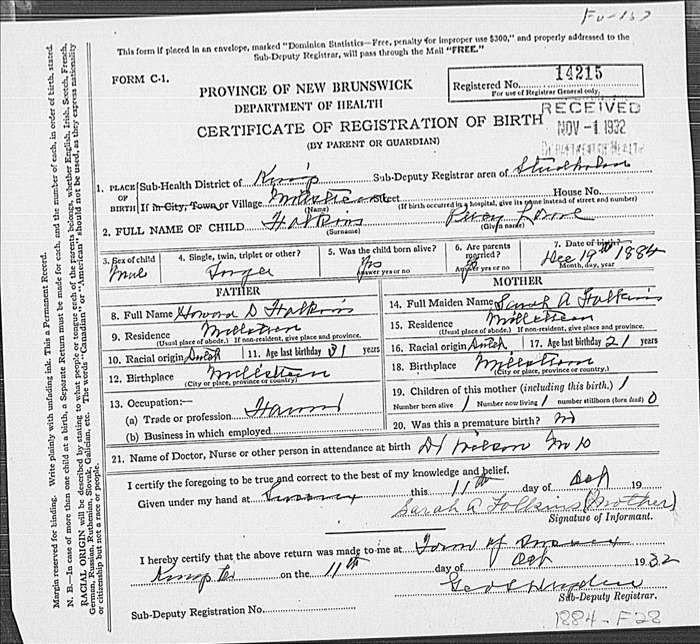 This form if placed in an envelope, marked "Dominion Statistics—Free, penalty for improper use $300," and properly addressed to the
Sub-Deputy Registrar, will pass through the Mail "FREE."
FORM C-1.
PROVINCE OF NEW BRUNSWICK
DEPARTMENT OF HEALTH
CERTIFICATE OF REGISTRATION OF BIRTH
(BY PARENT OR GUARDIAN)
Registered No. 14215
For use of Registrar General only.
RECEIVED
NOV -1 1932
DEPARTMENT OF HEALTH
1. PLACE OF BIRTH
Sub-Health District of Kings Sub-Deputy Registrar area of Studholm
If in City, Town or Village Millstream Street House No.
(Name) (If birth occurred in a hospital, give its name instead of street and number)
2. FULL NAME OF CHILD Folkins Percy
(Surname) (Given name)
3. Sex of child Male
4. Single, twin, triplet or other? Single
5. Was the child born alive? Yes
Answer yes or no
6. Are parents married?
Answer yes or no
7. Date of birth? Dec 19th 1884
Month, day, year
FATHER
8. Full Name Howard D Folkins
9. Residence Millstream
(Usual place of abode.) If non-resident, give place and province.
10. Racial origin Dutch 11. Age last birthday years
12. Birthplace Millstream
(City or place, province or country)
13. Occupation:—
(a) Trade or profession
(b) Business in which employed
MOTHER
14. Full Maiden Name Sarah A Folkins
15. Residence Millstream
(Usual place of abode.) If non-resident, give place and province.
16. Racial origin Dutch 17. Age last birthday 21 years
18. Birthplace Millstream
(City or place, province or country.)
19. Children of this mother (including this birth.) 1
Number born alive 1 Number now living 1 number stillborn (born dead) 0
20. Was this a premature birth? No
21. Name of Doctor, Nurse or other person in attendance at birth Dr Wilson M D
I certify the foregoing to be true and correct to the best of my knowledge and belief.
Given under my hand at Sussex this 11th day of Oct 19
Sarah A Folkins (Mother)
Signature of Informant.
I hereby certify that the above return was made to me at Town of Sussex
Kings Co on the 11th day of Oct 1932
Sub-Deputy Registrar.
Sub-Deputy Registration No.
1884-F28
Margin reserved for binding. Write plainly with unfading ink. This a Permanent Record.
N. B.—In case of more than one child at a birth, a Separate Return must be made for each, and the number of each, in order of birth, stated.
RACIAL ORIGIN will be described by stating to what people or tongue each of the parents belongs, whether English, Irish, Scotch, French,
German, Russian, Ruthenian, Slovak, Galician, etc. The words "Canadian" or "American" should not be used, as they express nationality
or citizenship but not a race or people.